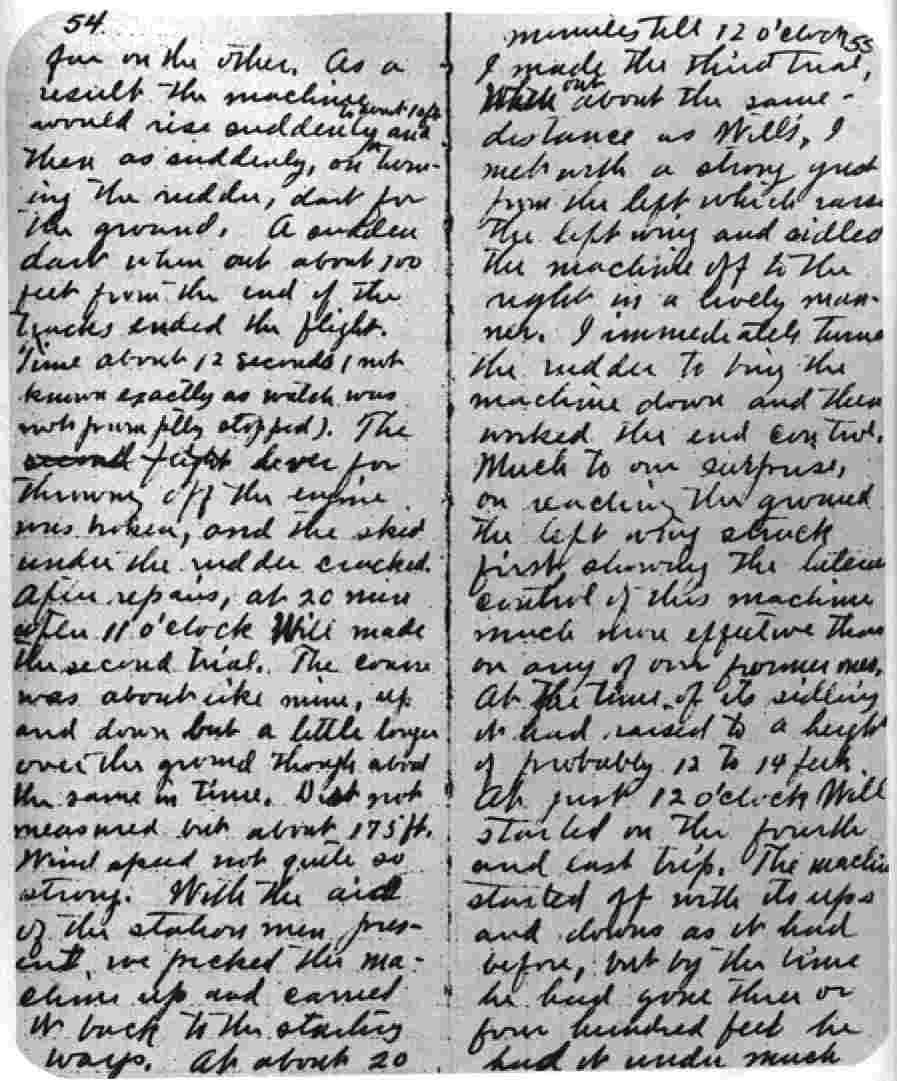 54.
far on the other. As a
result the machine
would rise suddenly to about 10 ft. and
then as suddenly, on turn-
ing the rudder, dart for
the ground. A sudden
dart when out about 100
feet from the end of the
tracks ended the flight.
Time about 12 seconds (not
known exactly as watch was
not promptly stopped). The
second flight lever for
throwing off the engine
was broken, and the skid
under the rudder cracked.
After repairs, at 20 min
after 11 o'clock Will made
the second trial. The course
was about like mine, up
and down but a little longer
over the ground though about
the same in time. Dist not
measured but about 175 ft.
Wind speed not quite so
strong. With the aid
of the station men pres-
ent, we picked the ma-
chine up and carried
it back to the starting
ways. At about 20
55
minutes till 12 o'clock
I made the third trial,
out about the same
distance as Will's, I
met with a strong gust
from the left which raise
the left wing and sidled
the machine off to the
right in a lively man-
ner. I immediately turne
the rudder to bring the
machine down and then
worked the end control.
Much to our surprise,
on reaching the ground
the left wing struck
first, showing the lateral
control of this machine
much more effective than
on any of our former ones.
At the time of its sidling
it had raised to a height
of probably 12 to 14 feet.
At just 12 o'clock Will
started on the fourth
and last trip. The machin
started off with its ups
and downs as it had
before, but by the time
he had gone three or
four hundred feet he
had it under much